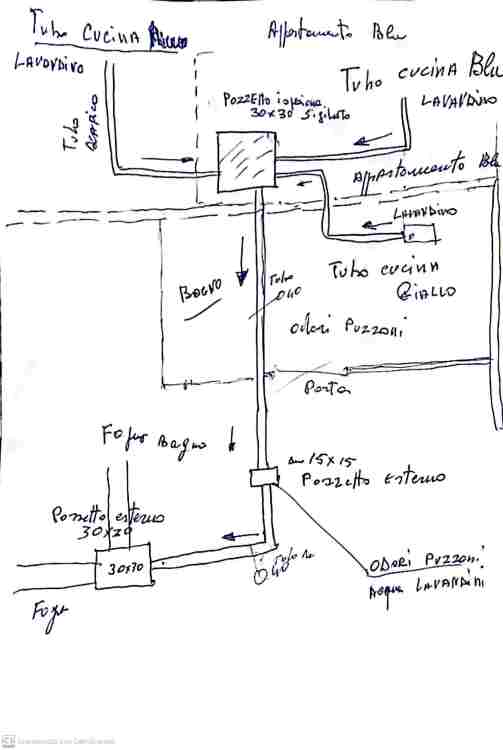 Tubo CUCINA
LAVANDINO
Appartamento Blu
Tubo CUCINA Blu
LAVANDINO
Tubo
SCARICO
POZZETTO
30x30 Sigillato
Appartamento Blu
LAVANDINO
Tubo CUCINA
GIALLO
BAGNO
Tubo
ODORI PUZZONI
Porta
Fogna Bagno
15x15
Pozzetto Esterno
Pozzetto esterno
30x30
30x30
Fogna
ODORI PUZZONI
Acqua LAVANDINI